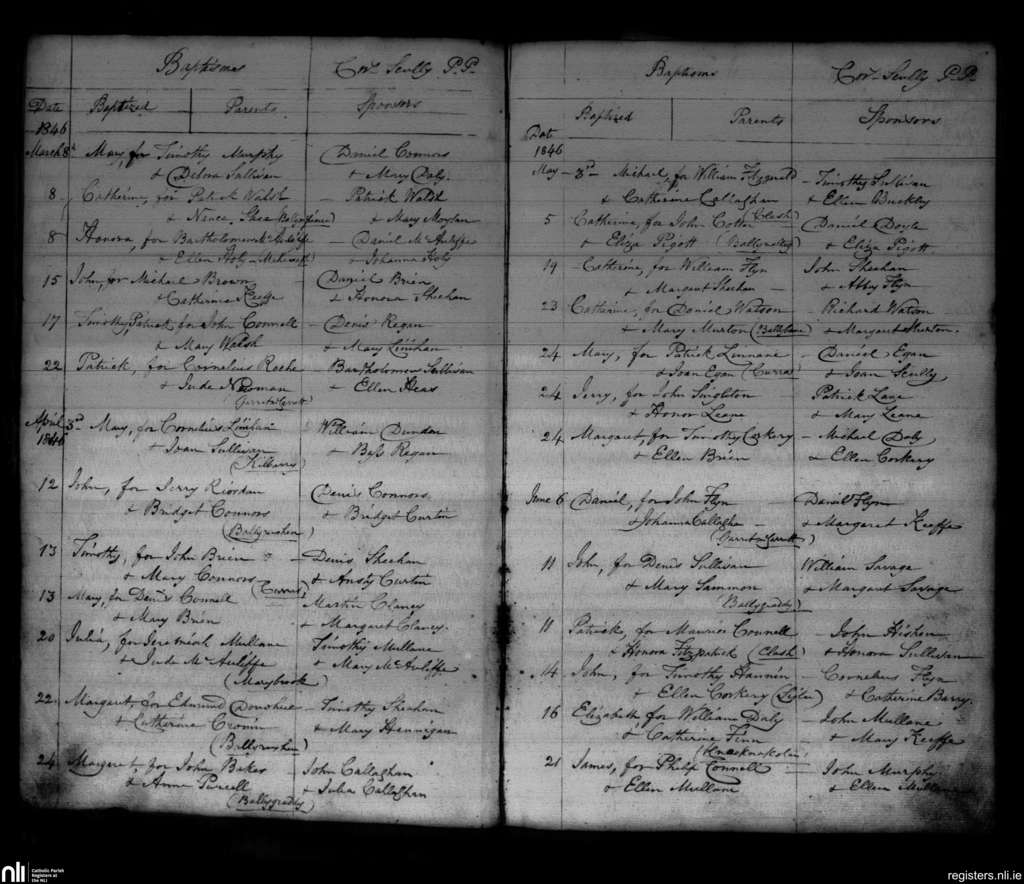 Baptisms Corn. Scully P.P.
Date Baptized Parents Sponsors
1846
March 8th Mary, for Timothy Murphy Daniel Connors
& Debora Sullivan & Mary Daly
8 Catherine, for Patrick Walsh - Patrick Walsh
& Nance Shea & Mary Moylan
8 Honora, for Bartholomew McAuliffe - Daniel McAuliffe
& Ellen & Johanna
15 John, for Michael Brown - Daniel Brien
& Catherine Keeffe & Honora Sheehan
17 Timothy Patrick, for John Connell - Denis Regan
& Mary Walsh & Mary Linihan
22 Patrick, for Cornelius Roche Bartholomew Sullivan
& Jude Noonan & Ellen Heas
(Garrettsgarrett)
April 3rd Mary, for Cornelius Linihan William Dundon
1846 & Joan Sullivan & Bess Regan
(Kilberry)
12 John, for Jerry Riordan Denis Connors
& Bridget Connors & Bridget Curtin
(Ballyrushen)
13 Timothy, for John Brien - Denis Sheehan
& Mary Connors (Curra) & Ansty Curtin
13 Mary, for Denis Connell Martin Clancy
& Mary Brien & Margaret Clancy.
20 Julia, for Jeremiah Mullane Timothy Mullane
& Jude McAuliffe & Mary McAuliffe
(Marybrook)
22 Margaret, for Edmund Donohue - Timothy Sheehan
& Catherine Cronin & Mary Hannigan
(Ballyrushen)
24 Margaret, for John Baker John Callaghan
& Anne Purcell & Julia Callaghan
(Ballygraddy)
Baptisms Corn. Scully P.P.
Baptized Parents Sponsors
Date
1846
May - 3rd Michael, for William Fitzgerald - Timothy Sullivan
& Catherine Callaghan & Ellen Buckley
5 Catherine, for John Cotter (Clash) Daniel Doyle
& Eliza Pigott & Eliza Pigott
14 - Catherine, for William Flyn John Sheehan
& Margaret Sheehan - & Abby Flyn
23 Catherine, for Daniel Watson - Richard Watson
& Mary Murton & Margaret Murton.
24 Mary, for Patrick Linnane - Daniel Egan
& Joan Egan (Curra) & Joan Scully
24 Jerry, for John Singleton Patrick Lane
& Honor Leane & Mary Leane
24 Margaret, for Timothy Corkery - Michael Daly
& Ellen Brien & Ellen Corkery
June 6 Daniel, for John Flyn Daniel Flyn
& Johanna Callaghan - & Margaret Keeffe
(Garrettsgarrett)
11 John, for Denis Sullivan William Savage
& Mary Sammon & Margaret Savage
(Ballygraddy)
11 Patrick, for Maurice Connell John Hishen
& Honora Fitzpatrick (Clash) & Honora Sullivan
14 John, for Timothy Hannin - Cornelius Flyn
& Ellen Corkery & Catherine Barry.
16 Elizabeth, for William Daly - John Mullane
& Catherine Finn & Mary Keeffe
21 James, for Philip Connell John Murphy
& Ellen Mullane & Ellen Mullane
nli Catholic Parish
Registers at
the NLI
registers.nli.ie